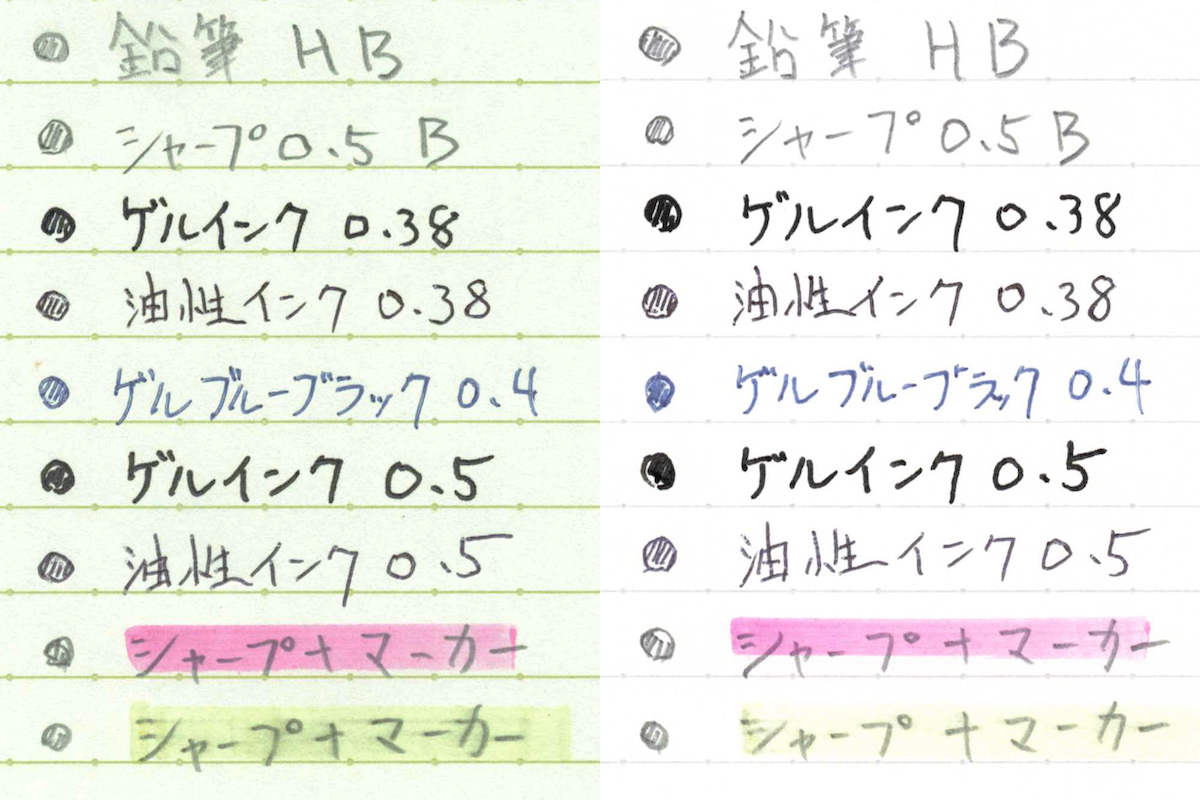 鉛筆 HB
シャープ0.5 B
ゲルインク 0.38
油性インク 0.38
ゲルブルーブラック 0.4
ゲルインク 0.5
油性インク 0.5
シャープ+マーカー
シャープ+マーカー
鉛筆 HB
シャープ0.5B
ゲルインク 0.38
油性インク 0.38
ゲルブルーブラック 0.4
ゲルインク 0.5
油性インク 0.5
シャープ+マーカー
シャープ+マーカー